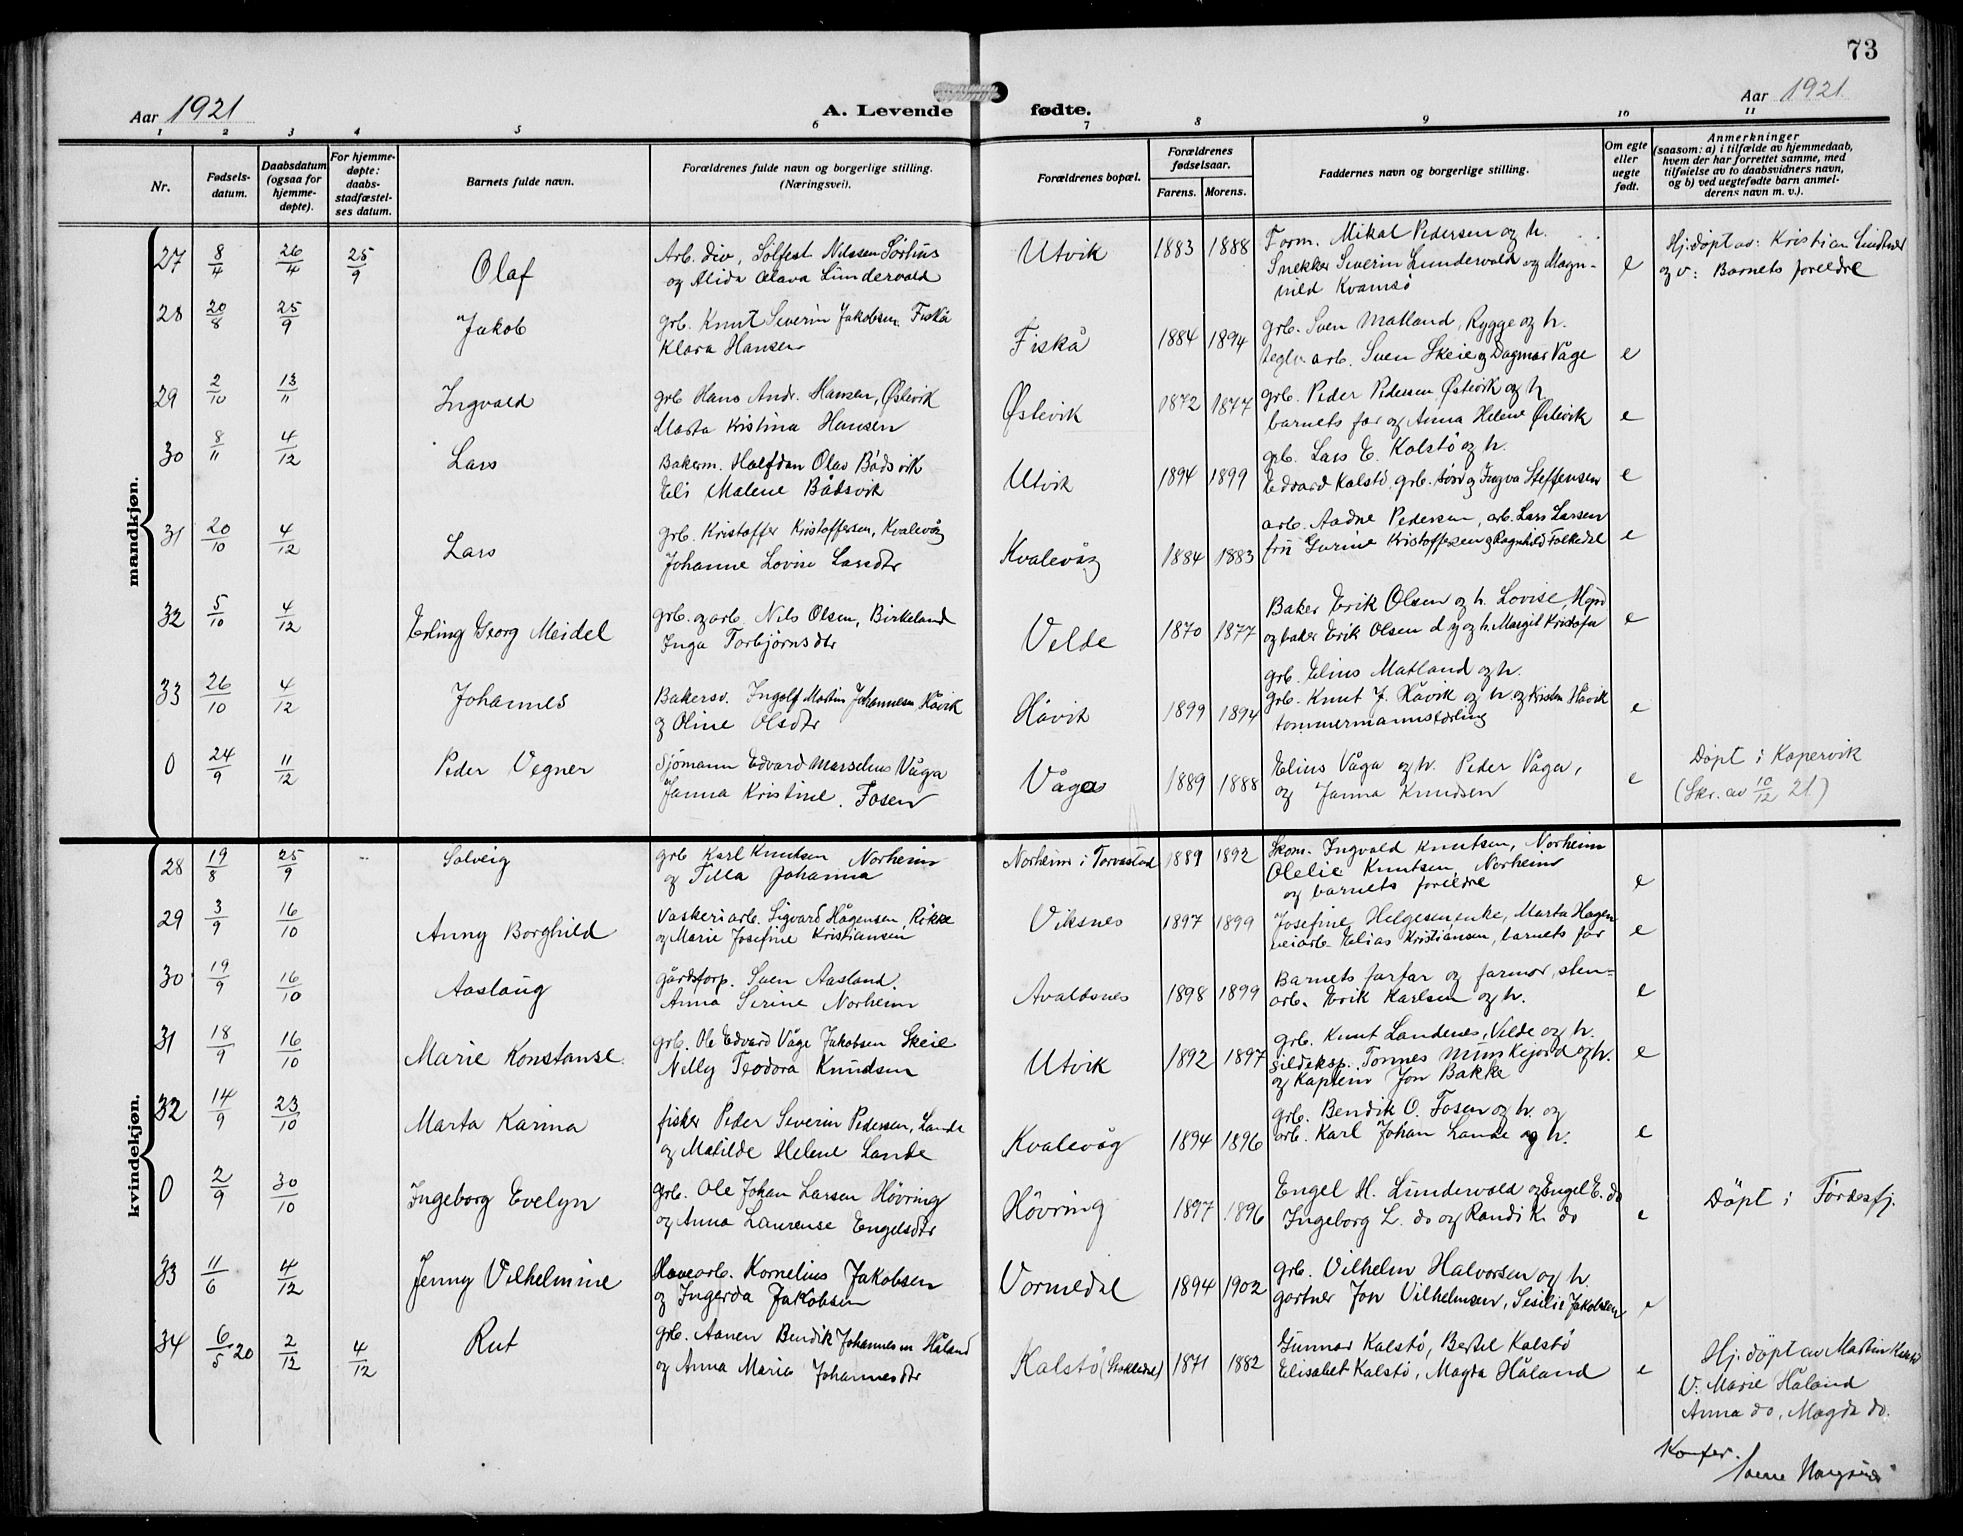 73
Aar 1921
A. Levende fødte.
Aar 1921
1 2 3 4 5 6 7 8 9 10 11
Nr.
Fødsels-
datum.
Daabsdatum
(ogsaa for
hjemme-
døpte).
For hjemme-
døpte:
daabs-
stadfæstel-
ses datum.
Barnets fulde navn.
Forældrenes fulde navn og borgerlige stilling.
(Næringsvei).
Forældrenes bopæl.
Forældrenes
fødselsaar.
Farens. Morens.
Faddernes navn og borgerlige stilling.
Om egte
eller
uegte
født.
Anmerkninger
(saasom: a) i tilfælde av hjemmedaab,
hvem der har forrettet samme, med
tilføielse av to daabsvidners navn,
og b) ved uegtefødte barn anmel-
derens navn m. v.).
mandkjøn.
27 8/4 26/4 25/9 Olaf
Arb. div, Solfest Nilssen Sørhus
og Alida Olava Lundervold
Utvik 1883 1888
Form. Mikal Pedersen og h.
Snekker Severin Lundervold og Magn-
hild Kvamsø
e
Hj.døpt av: Kristian
og v: Barnets foreldre
28 20/8 25/9 Jakob
grb. Knut Severin Jakobsen Fiskå
Klara Hansen
Fiskå 1884 1894
grb. Sven Matland, Rygge og h.
arb. Sven Skeie og Dagmar Våge
e
29 2/10 13/11 Ingvald
grb Hans Andr. Hansen, Østevik
Marta Kristina Hansen
Østevik 1872 1877
grb. Peder Pedersen Østevik og h
barnets far og Anna Helene Østevik
e
30 8/11 4/12 Lars
Bakerm. Halfdan Olav Bådsvik
Eli Malene Bådsvik
Utvik 1894 1899
grb. Lars E. Kalstø og h.
Edvard Kalstø, grb. sønn og Ingva Steffensen
e
31 20/10 4/12 Lars
grb. Kristoffer Kristoffersen, Kvalevåg
Johanne Lovise Larsdtr
Kvalevåg 1884 1883
arb. Aadne Pedersen, arb. Lars Larsen
fru Gurine Kristoffersen og Ragnhild Folkedal
e
32 5/10 4/12 Erling Georg Meidel
grb. og arb. Nils Olsen, Birkeland
Inga Torbjørnsdtr
Velde 1870 1877
Baker Erik Olsen og h. Lovise,
og baker Erik Olsen d y og h. Margit
e
33 26/10 4/12 Johannes
Bakersv. Ingolf Martin Johannesen, Håvik
og Oline Olsdtr
Håvik 1899 1894
grb. Elius Matland og h.
grb. Knut J. Håvik og h. og Kristen Håvik
tømmermannslærling
e
0 24/9 11/12 Peder Vegner
Sjømann Edvard Marselius Våga
Janna Kristine Fosen
Våga 1889 1888
Elius Våga og h. Peder Våga,
og Janna Knudsen
e
Døpt i Kopervik
(Skr. av 10/12 21)
kvindekjøn.
28 19/8 25/9 Solveig
grb Karl Knutsen Norheim
og Tilla Johanna
Norheim i Torvastad 1889 1892
Skom. Ingvald Knutsen, Norheim
Olelie Knutsen, Norheim
og barnets foreldre
e
29 3/9 16/10 Anny Borghild
Vaskeriarb. Sigvard Hågensen Røkke
og Marie Josefine Kristiansen
Viksnes 1897 1899
Josefine Helgesen enke, Marta Hagen
veiarb Elias Kristiansen, barnets far
e
30 19/9 16/10 Aaslaug
gårdsforp. Sven Aasland.
Anna Serine Norheim
Avaldsnes 1898 1899
Barnets farfar og farmor, sten-
arb. Erik Karlsen og h.
e
31 18/9 16/10 Marie Konstanse.
grb. Ole Edvard Våge Jakobsen Skeie
Nelly Teodora Knudsen
Utvik 1892 1897
grb. Knut Landenes, Velde og h.
sildeksp. Tønnes Munkejord og h.
og Kaptein Jon Bakke
e
32 14/9 23/10 Marta Karina
fisker Peder Severin Pedersen, Lande
og Matilde Helene Lande
Kvalevåg 1894 1896
grb. Bendik O. Fosen og h. og
arb. Karl Johan Lande og h.
e
0 2/9 30/10 Ingeborg Evelyn
grb. Ole Johan Larsen Høvring
og Anna Laurense Engelsdtr
Høvring 1897 1896
Engel H. Lundervold og Engel E. do
Ingeborg L. do og Randi K. do
e
Døpt i Førdesfj.
33 11/6 4/12 Jenny Vilhelmine
Havearb. Kornelius Jakobsen
og Ingerda Jakobsen
Vormedal 1894 1902
grb. Vilhelm Halvorsen og h.
gartner Jon Vilhelmsen, Sesilie Jakobsen
e
34 6/5 20 2/12 4/12 Rut
grb. Aanen Bendik Johannesen Håland
og Anna Maria Johannesdtr
Kalstø 1871 1882
Gunnar Kalstø, Bertel Kalstø
Elisabet Kalstø, Magda Håland
e
Hj. døpt av Martin
V: Marie Håland
Anna do, Magda do.
Konfer.